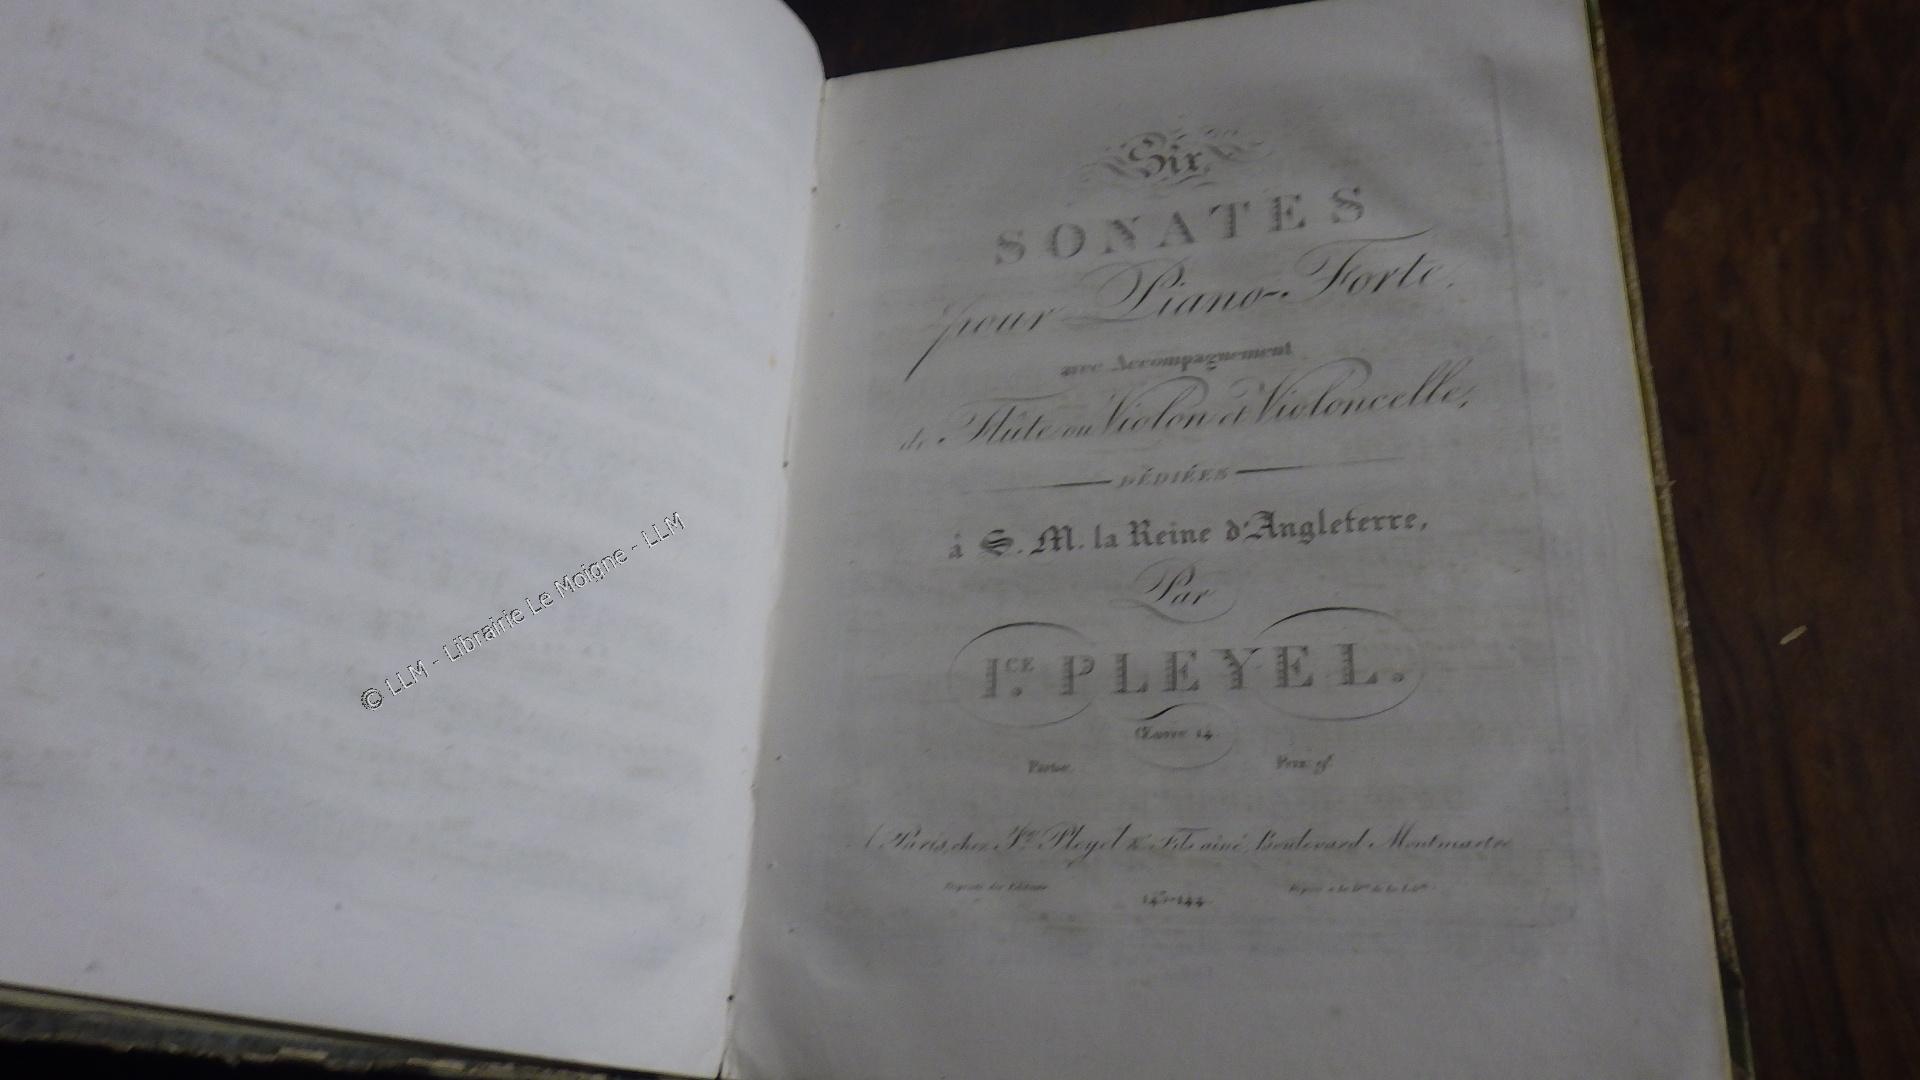 Six
SONATES
pour Piano-Forte,
avec Accompagnement
de Flûte ou Violon et Violoncelle,
DÉDIÉES
à S. M. la Reine d'Angleterre,
Par
I.CE PLEYEL.
Œuvre 14.
Partie. Prix 9f.
A Paris, chez Pleyel & Fils ainé, Boulevard Montmartre
Propriété des Editeurs
© LLM - Librairie Le Moigne - LLM